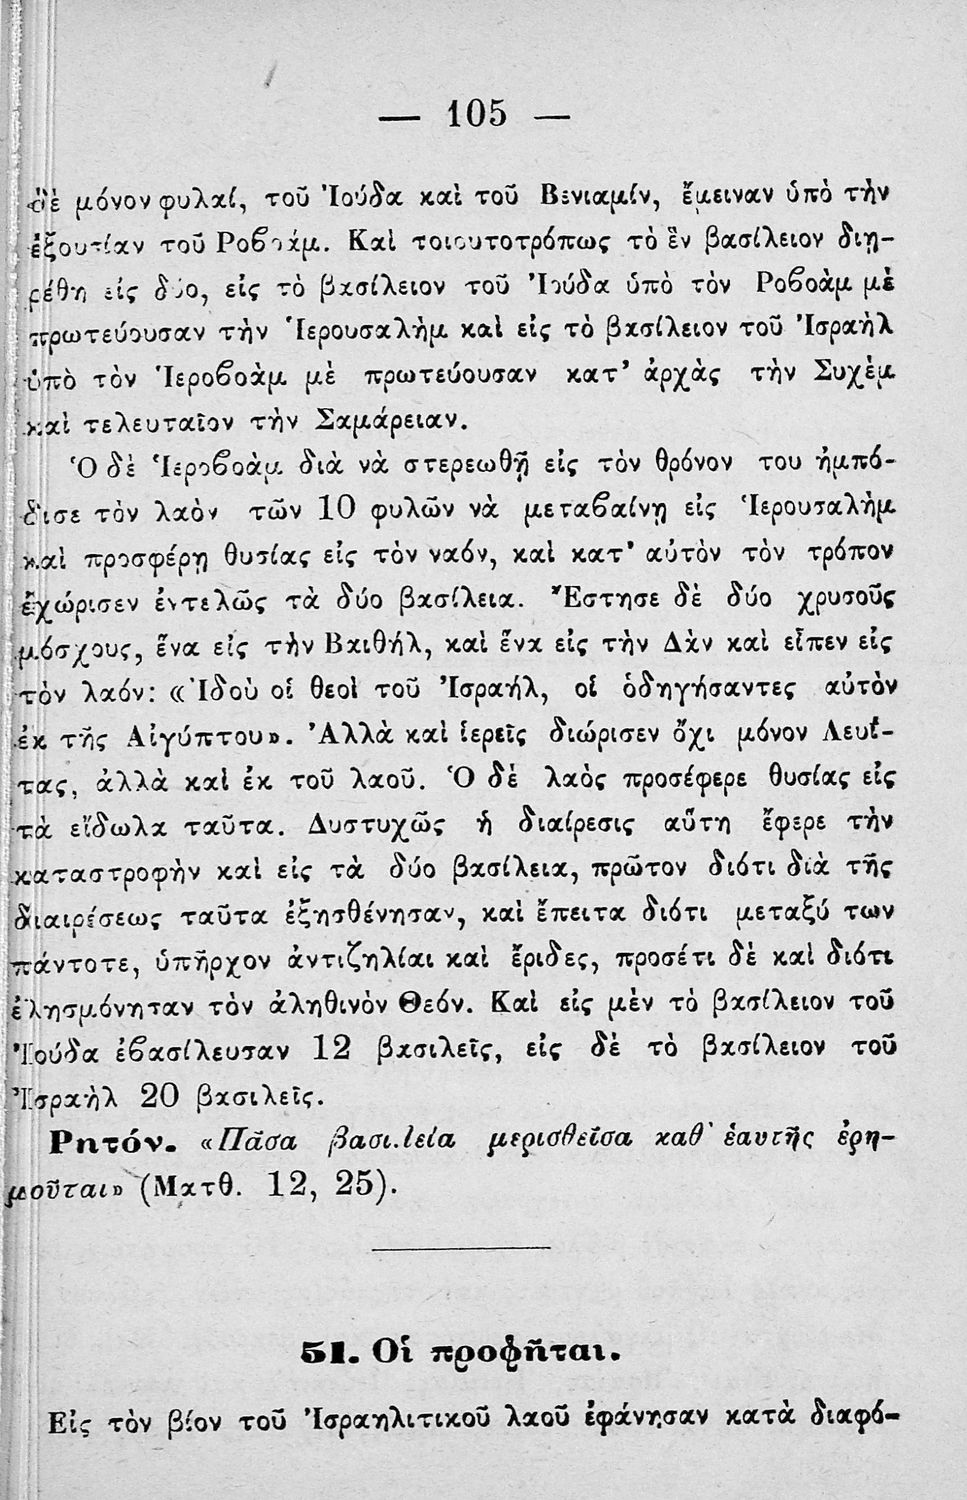 — 105 —
δὲ μόνον φυλαί, τοῦ Ἰούδα καὶ τοῦ Βενιαμίν, ἔμειναν ὑπὸ τὴν
ἐξουσίαν τοῦ Ροβοάμ. Καὶ τοιουτοτρόπως τὸ ἓν βασίλειον διῃ-
ρέθη εἰς δύο, εἰς τὸ βασίλειον τοῦ Ἰούδα ὑπὸ τὸν Ροβοὰμ μὲ
πρωτεύουσαν τὴν Ἱερουσαλὴμ καὶ εἰς τὸ βασίλειον τοῦ Ἰσραὴλ
ὑπὸ τὸν Ἱεροβοὰμ μὲ πρωτεύουσαν κατ’ ἀρχὰς τὴν Συχὲμ
καὶ τελευταῖον τὴν Σαμάρειαν.
Ὁ δὲ Ἱεροβοὰμ διὰ νὰ στερεωθῇ εἰς τὸν θρόνον του ἠμπό-
δισε τὸν λαὸν τῶν 10 φυλῶν νὰ μεταβαίνῃ εἰς Ἱερουσαλὴμ
καὶ προσφέρῃ θυσίας εἰς τὸν ναόν, καὶ κατ’ αὐτὸν τὸν τρόπον
ἐχώρισεν ἐντελῶς τὰ δύο βασίλεια. Ἔστησε δὲ δύο χρυσοῦς
μόσχους, ἕνα εἰς τὴν Βαιθήλ, καὶ ἕνα εἰς τὴν Δὰν καὶ εἶπεν εἰς
τὸν λαόν: «Ἰδοὺ οἱ θεοὶ τοῦ Ἰσραήλ, οἱ ὁδηγήσαντες αὐτὸν
ἐκ τῆς Αἰγύπτου». Ἀλλὰ καὶ ἱερεῖς διώρισεν ὄχι μόνον Λευΐ-
τας, ἀλλὰ καὶ ἐκ τοῦ λαοῦ. Ὁ δὲ λαὸς προσέφερε θυσίας εἰς
τὰ εἴδωλα ταῦτα. Δυστυχῶς ἡ διαίρεσις αὕτη ἔφερε τὴν
καταστροφὴν καὶ εἰς τὰ δύο βασίλεια, πρῶτον διότι διὰ τῆς
διαιρέσεως ταῦτα ἐξησθένησαν, καὶ ἔπειτα διότι μεταξύ των
πάντοτε, ὑπῆρχον ἀντιζηλίαι καὶ ἔριδες, προσέτι δὲ καὶ διότι
ἐλησμόνησαν τὸν ἀληθινὸν Θεόν. Καὶ εἰς μὲν τὸ βασίλειον τοῦ
Ἰούδα ἐβασίλευσαν 12 βασιλεῖς, εἰς δὲ τὸ βασίλειον τοῦ
Ἰσραὴλ 20 βασιλεῖς.
Ρητόν. «Πᾶσα βασιλεία μερισθεῖσα καθ’ ἑαυτῆς ἐρη-
μοῦται» (Ματθ. 12, 25).
51. Οἱ προφῆται.
Εἰς τὸν βίον τοῦ Ἰσραηλιτικοῦ λαοῦ ἐφάνησαν κατὰ διαφό-